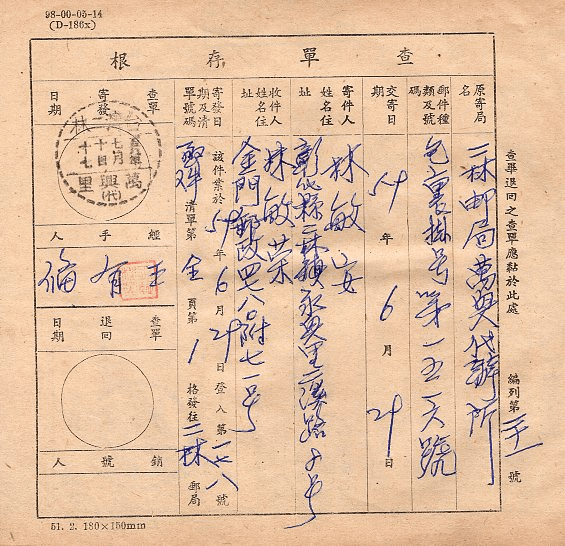 98-00-05-14
(D-186x)
查單存根
原寄局名
二林郵局萬興代辦所
郵件種類及號碼
包裹掛號第一五一六號
交寄日期
59年6月29日
寄件人姓名住址
林敏安
彰化縣二林鎮永興里二溪路 号
收件人姓名住址
林敏榮
金門郵政四七八〇附七一号
寄發日期及清單號碼
該件業於59年6月29日登入第一七八號
清單第全頁第1格發往二林郵局
查單寄發日期
二林
七月十四
十七
萬興里
(代)
經手人
王有
查單退回日期
銷號人
查畢退回之查單應黏於此處
編列第 號
51. 2. 180×150mm